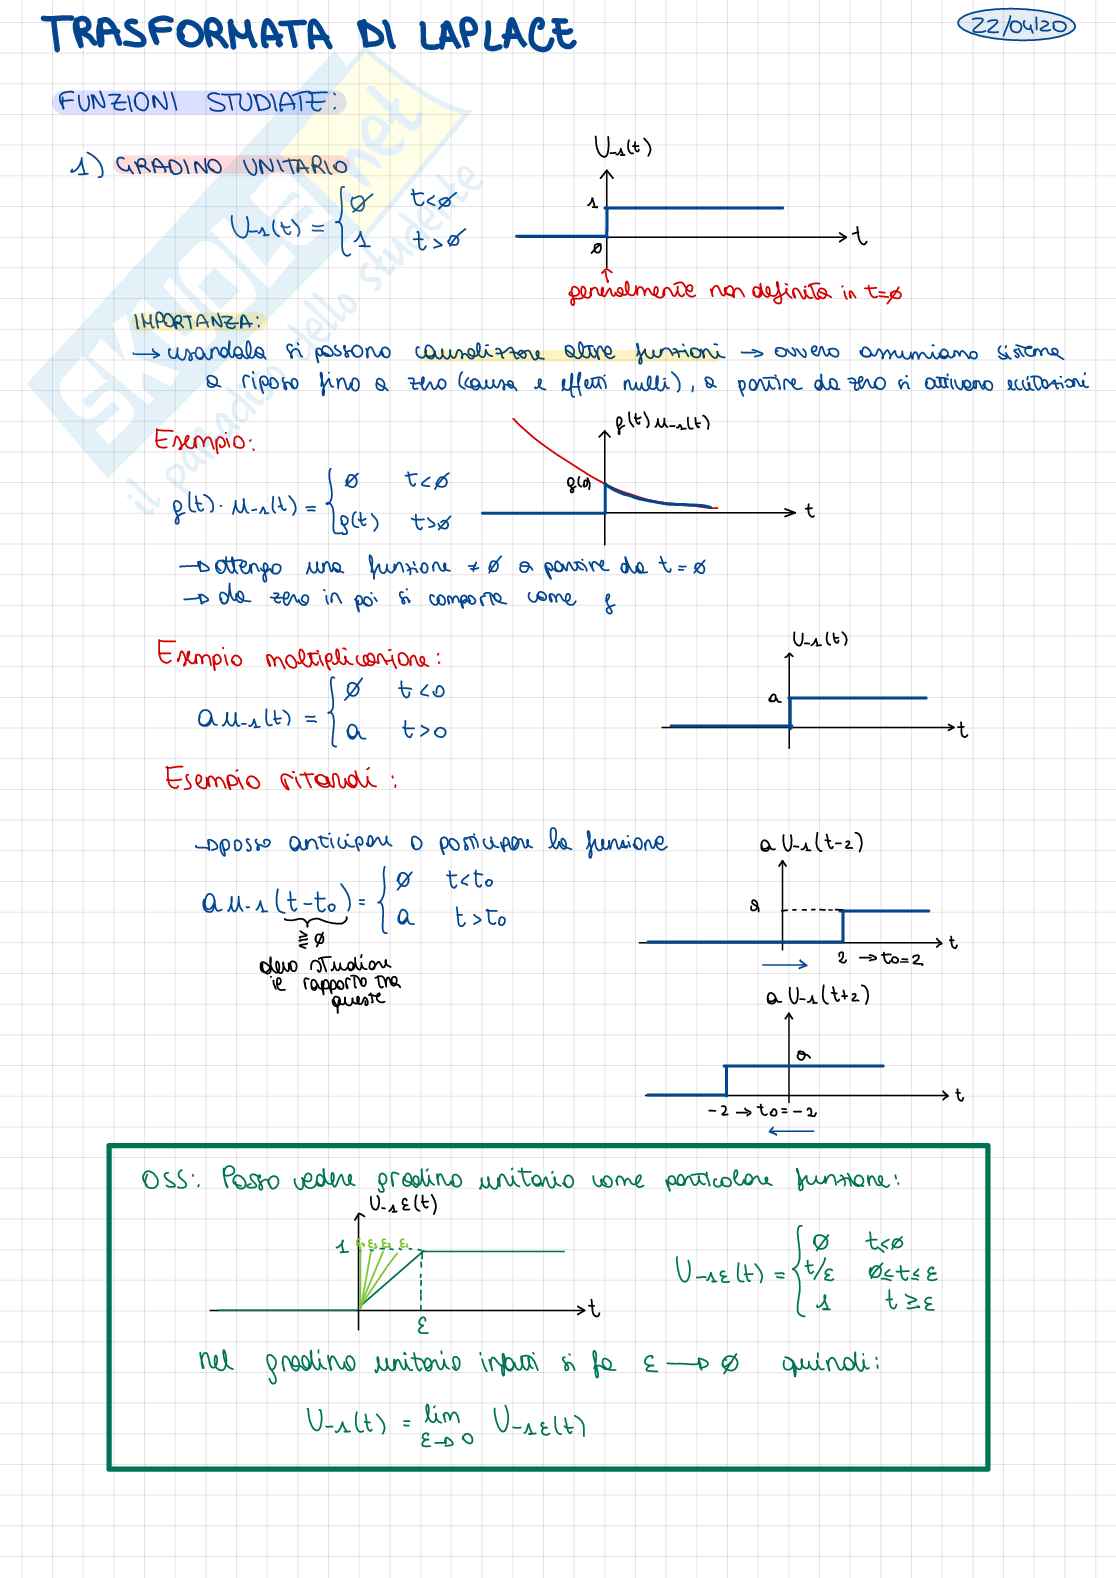 TRASFORMATA DI LAPLACE
22/04/20
FUNZIONI STUDIATE:
1) GRADINO UNITARIO
U₋₁(t) = { ∅ t<∅
1 t>∅
U₋₁(t)
1
∅
t
generalmente non definita in t=∅
IMPORTANZA:
→ usandola si possono causalizzare altre funzioni → ovvero assumiamo sistema
a riposo fino a zero (causa e effetti nulli), a partire da zero si attivano eccitazioni
Esempio:
f(t)·μ₋₁(t) = { ∅ t<∅
f(t) t>∅
f(t) μ₋₁(t)
f(0)
t
→ ottengo una funzione ≠ ∅ a partire da t = ∅
→ da zero in poi si comporta come f
Esempio moltiplicazione:
a μ₋₁(t) = { ∅ t<0
a t>0
U₋₁(t)
a
t
Esempio ritardi:
→ posso anticipare o posticipare la funzione
a μ₋₁(t-t₀) = { ∅ t<t₀
a t>t₀
⪌ ∅
devo studiare
il rapporto tra
queste
a U₋₁(t-2)
a
2 → t₀=2
t
a U₋₁(t+2)
a
-2 → t₀=-2
t
OSS: Posso vedere gradino unitario come particolare funzione:
U₋₁ε(t)
1
ε₃ ε₂ ε₁
ε
t
U₋₁ε(t) = { ∅ t<∅
t/ε ∅≤t≤ε
1 t≥ε
nel gradino unitario infatti si fa ε → ∅ quindi:
U₋₁(t) = lim U₋₁ε(t)
ε→0
SKUOLA.net
il paradiso dello studente